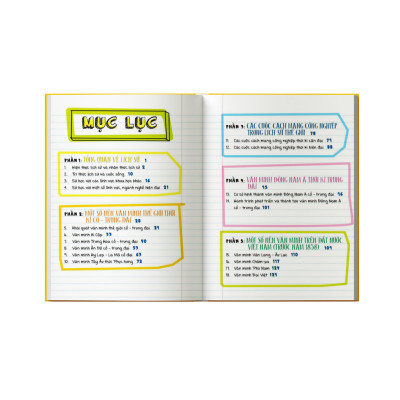 MỤC LỤC
PHẦN 1: TỔNG QUAN VỀ LỊCH SỬ 1
1. Hiện thực lịch sử và nhận thức lịch sử 2
2. Tri thức lịch sử và cuộc sống 10
3. Sử học với các lĩnh vực khoa học khác 16
4. Sử học với một số lĩnh vực, ngành nghề hiện đại 21
PHẦN 2: MỘT SỐ NỀN VĂN MINH THẾ GIỚI THỜI
KÌ CỔ - TRUNG ĐẠI
5. Khái quát văn minh thế giới cổ - trung đại
6. Văn minh Ai Cập
7. Văn minh Trung Hoa cổ - trung đại
8. Văn minh Ấn Độ cổ - trung đại
9. Văn minh Hy Lạp - La Mã cổ đại
10. Văn minh Tây Âu thời Phục hưng
PHẦN 3: CÁC CUỘC CÁCH MẠNG CÔNG NGHIỆP
TRONG LỊCH SỬ THẾ GIỚI
11. Các cuộc cách mạng công nghiệp thời kì cận đại
12. Các cuộc cách mạng công nghiệp thời kì hiện đại
PHẦN 4: VĂN MINH ĐÔNG NAM Á THỜI KÌ TRUNG
ĐẠI
13. Cơ sở hình thành văn minh Đông Nam Á cổ - trung đại
14. Hành trình phát triển và thành tựu văn minh Đông Nam Á
cổ - trung đại 101
PHẦN 5: MỘT SỐ NỀN VĂN MINH TRÊN ĐẤT NƯỚC
VIỆT NAM (TRƯỚC NĂM 1858)
15. Văn minh Văn Lang - Âu Lạc 110
16. Văn minh Chăm-pa 117
17. Văn minh Phù Nam
18. Văn minh Đại Việt